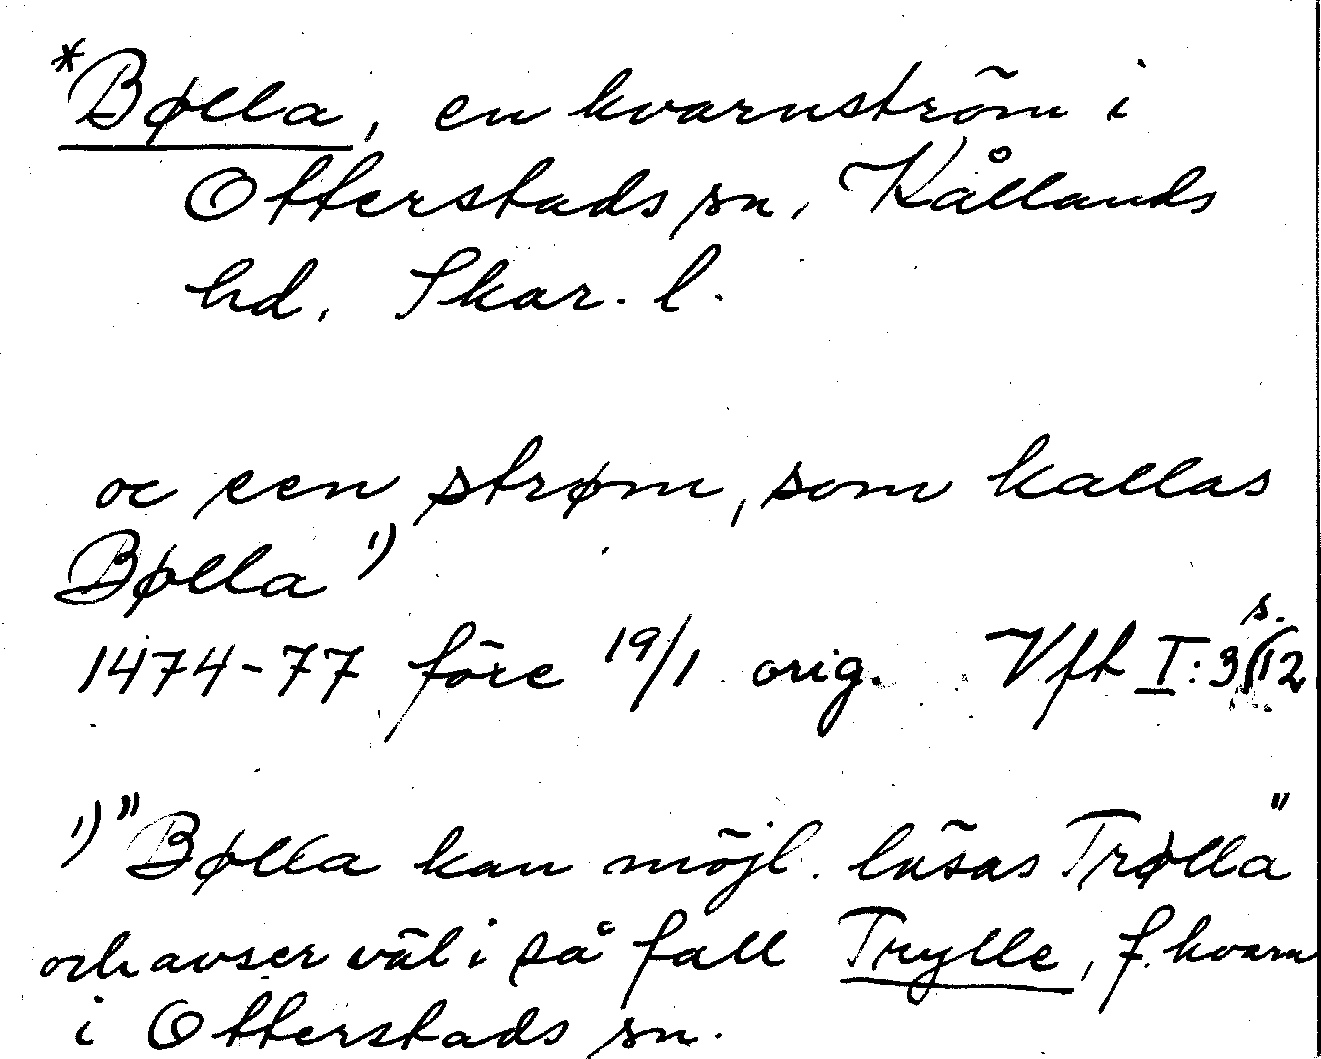 *Bølla, en kvarnström i
Otterstads sn, Kållands
hd. Skar. l.
oc een strøm, som kallas
Bølla ¹⁾
1474-77 före 19/1 orig. Vfh I:3 s. 12
¹⁾ "Bølla kan möjl. läsas Trølla"
och avser väl i så fall Trylle, f. kvarn
i Otterstads sn.